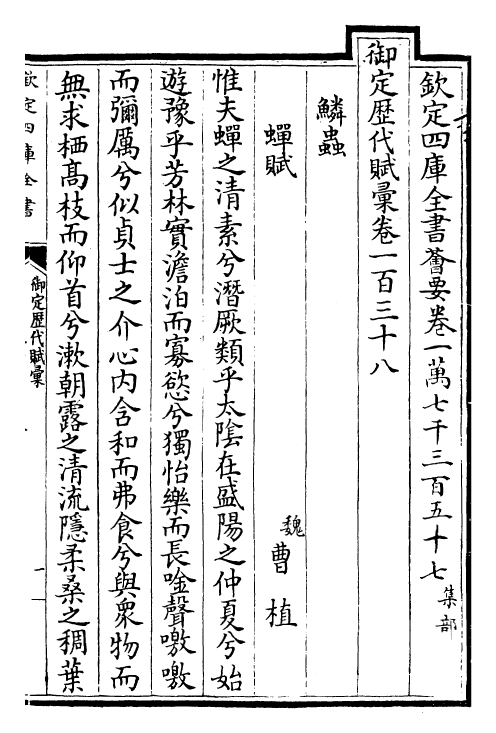 欽定四庫全書薈要卷一萬七千三百五十七 集部
御定歴代賦彙卷一百三十八
鱗蟲
蟬賦 魏 曹植
惟夫蟬之清素兮潛厥類乎太陰在盛陽之仲夏兮始
遊豫乎芳林實澹泊而寡慾兮獨怡樂而長唫聲噭噭
而彌厲兮似貞士之介心内含和而弗食兮與衆物而
無求栖髙枝而仰首兮漱朝露之清流隱柔桑之稠葉
欽定四庫全書
御定歴代賦彙
一